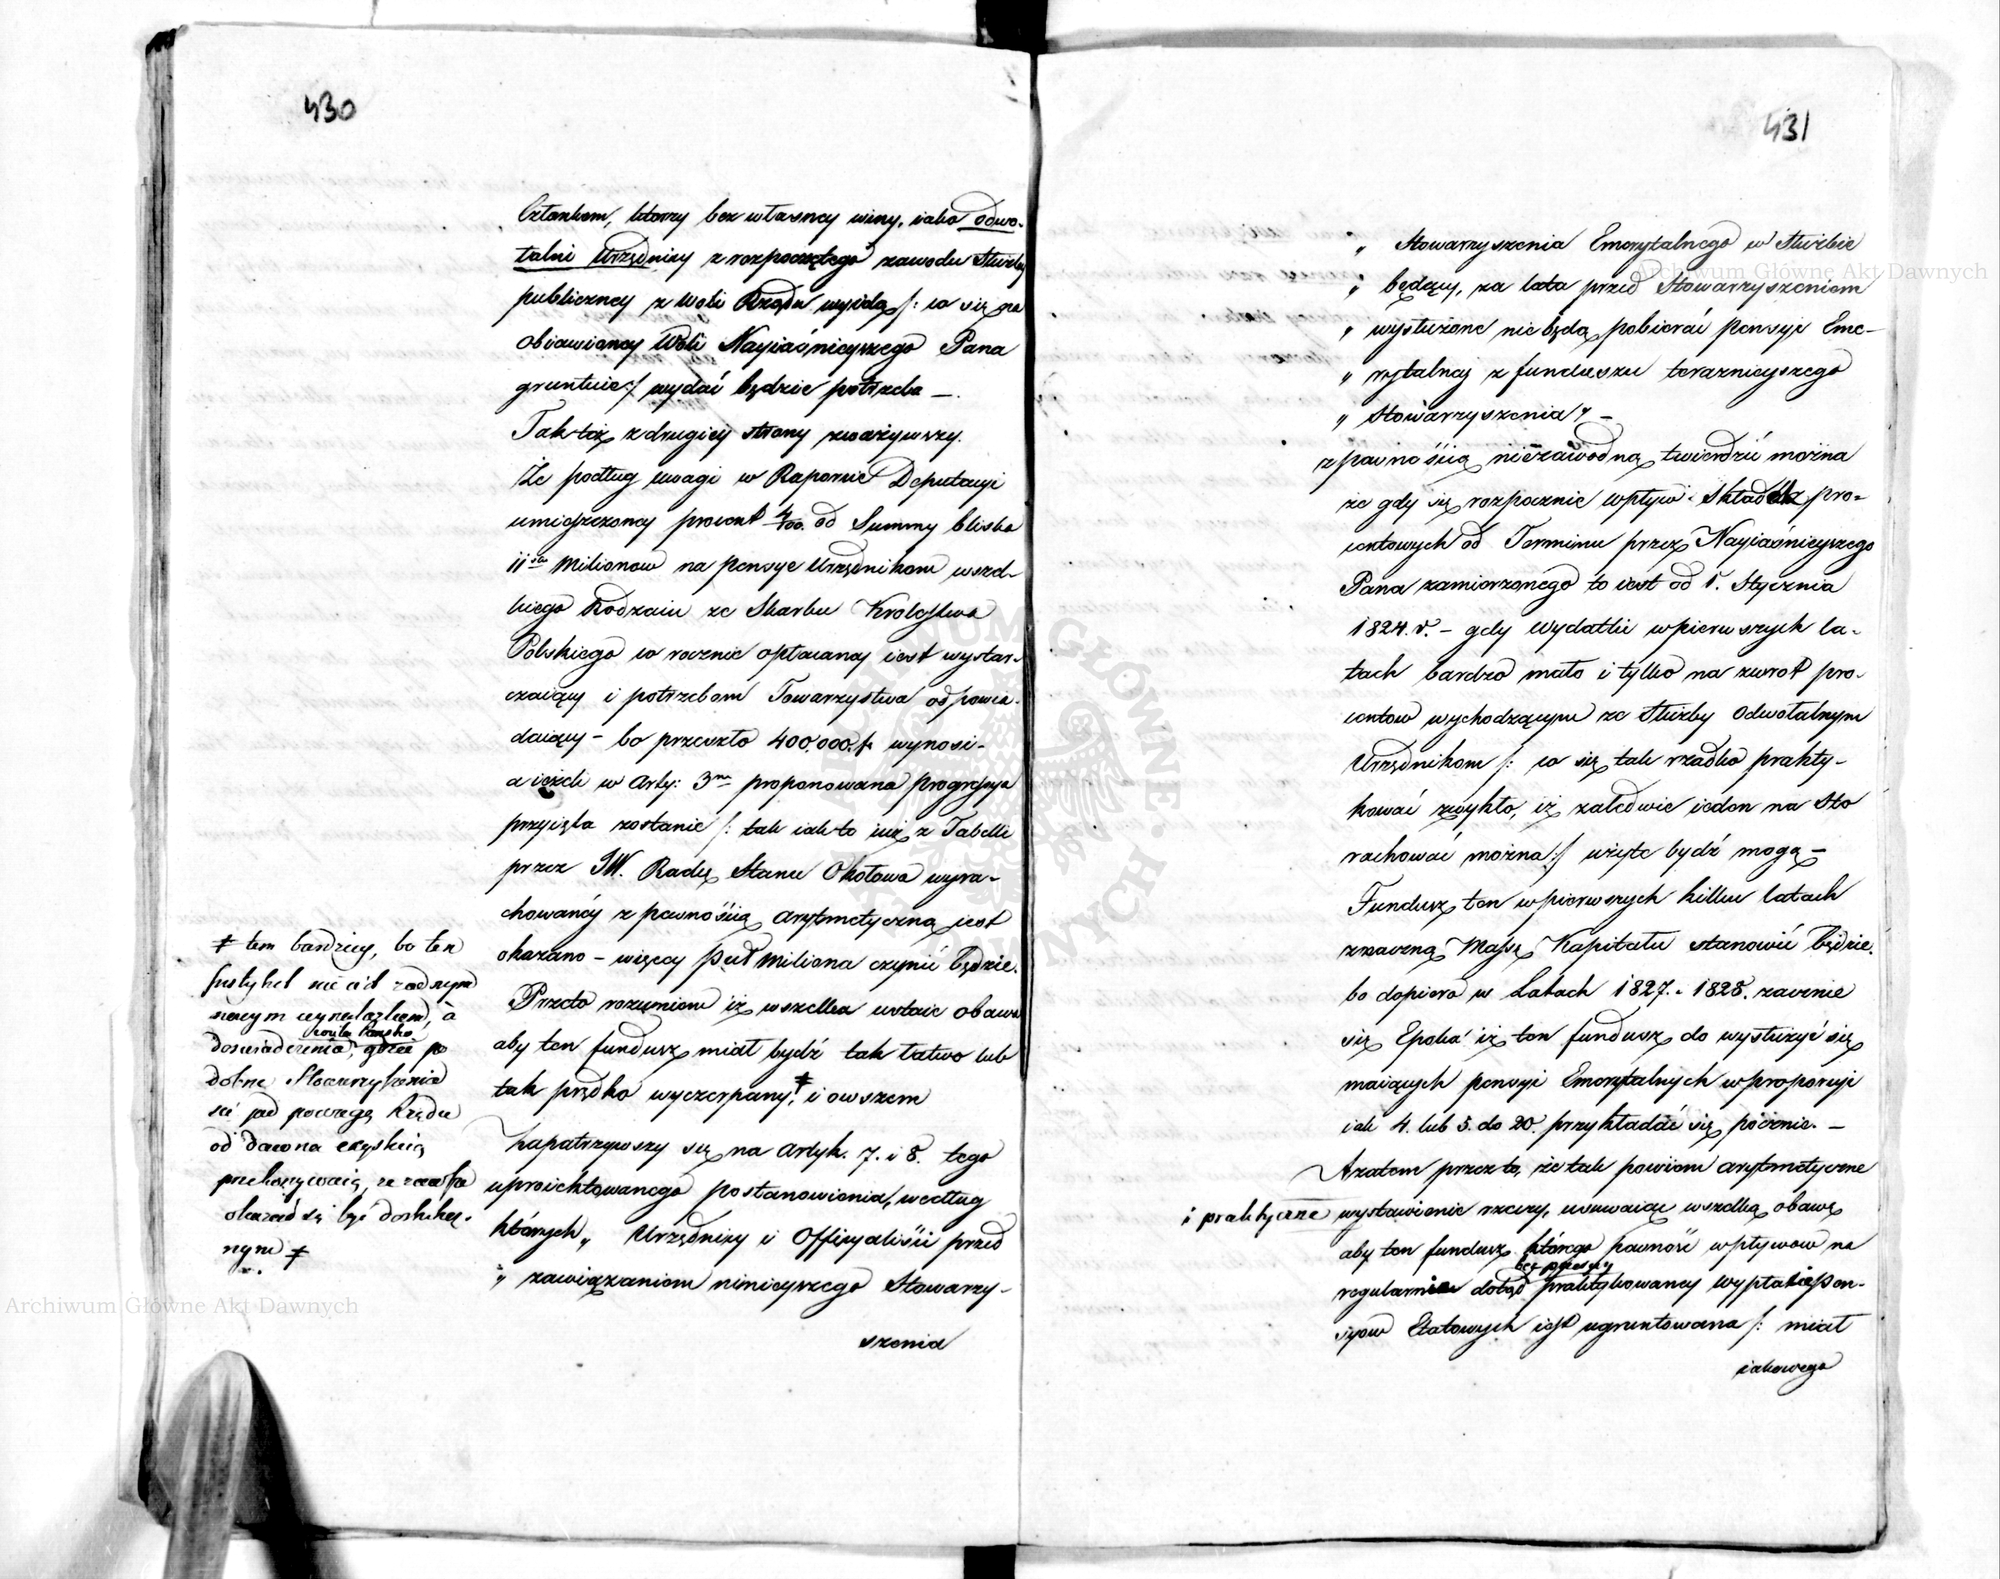 430
Członkom, którzy bez własney winy, iako odwo-
łalni Urzędnicy z rozpoczętego zawodu Służby
publiczney z woli Rządu wyidą /: co się na
obiawioney Woli Nayiaśnieyszego Pana
gruntuie :/ wydać będzie potrzeba —.
Tak też z drugiey strony zważywszy.
Że podług uwagi w Raporcie Deputacyi
umieszczoney procent 4/100. od Summy blisko
11stu Milionow na pensye Urzędnikom wszel-
kiego Rodzaiu ze Skarbu Krolestwa
Polskiego co rocznie opłacaney iest wystar-
czaiący i potrzebom Towarzystwa odpowia-
daiący – bo przeszło 400.000. fr wynosi –
a ieżeli w Arty: 3m proponowana progressya
przyięta zostanie /: tak iak to iuż z Tabelli
przez JW. Radcę Stanu Okołowa wyra-
chowaney z pewnością arytmetyczną jest
okazano – więcey puł Miliona czynić będzie.
Przeto rozumiem iż wszelka ustaie obawa
aby ten fundusz miał bydź tak łatwo lub
tak prędko wyczerpany, ‡ i owszem
Zapatrzywszy się na Artyk. 7. i 8. tego
uproiektowanego postanowienia, według
których „ Urzędnicy i Officyaliści przed
„ zawiązaniem ninieyszego Stowarzy-
szenia
‡ tem bardziey, bo ten
Instytut nie iest żadnym
nowym wynalazkiem, a
doświadczenia, gdzie po
dobne Stowarzyszenia
się pod powagą Rządu
od dawna
przekonywaią, że zawsze
okazał się być dostatecz-
nym ‡
431
„ Stowarzyszenia Emerytalnego w Służbie
„ będący, za lata przed Stowarzyszeniem
„ wysłużone nie będą pobierać pensyi Eme-
„ rytalney z funduszu teraznieyszego
„ Stowarzyszenia „ –
z pewnością niezawodną twierdzić można
że gdy się rozpocznie wpływ Składek pro-
centowych od Terminu przez Nayiaśnieyszego
Pana zamierzonego to iest od 1. Stycznia
1824. r. – gdy wydatki w pierwszych la-
tach bardzo mało i tylko na zwrot pro-
centow wychodzącym ze Służby odwołalnym
Urzędnikom /: co się tak rzadko prakty-
kować zwykło, iż zaledwie ieden na Sto
rachować można :/ użyte bydź mogą –
Fundusz ten w pierwszych kilku latach
znaczną Massę Kapitału stanowić będzie.
bo dopiero w Latach 1827. – 1828. zacznie
się Epoka iż ten fundusz do wysłużyć się
maiących pensyi Emerytalnych w proporcyi
iak 4. lub 5. do 20. przykładać się pocznie. –
A zatem przez to, że tak powiem arytmetyczne
i praktyczne wystawienie rzeczy, usuwaiąc wszelką obawę
aby ten fundusz którego pewność wpływow na
bez przerwy
regularnie dotąd praktykowaney wypłacie pen-
syow Etatowych iest ugruntowana /: miał
iakowego
Archiwum Główne Akt Dawnych
Archiwum Główne Akt Dawnych
ARCHIWUM GŁÓWNE AKT DAWNYCH